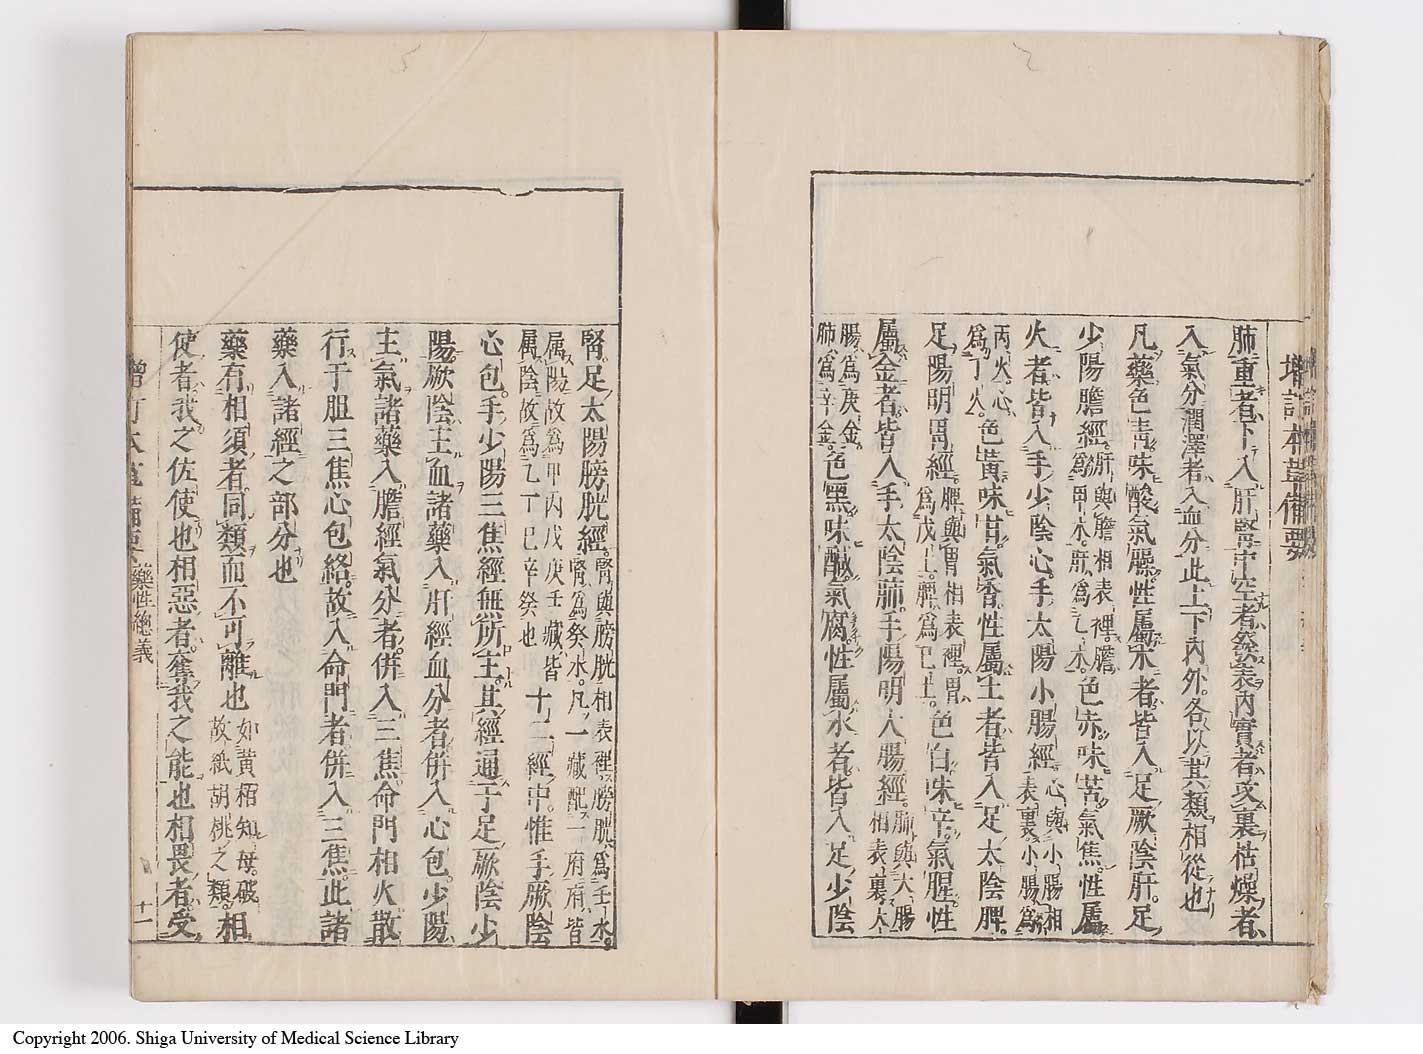 增訂本草備要
肺重者下入肝腎中空者發表內實者攻裏枯燥者
入氣分潤澤者入血分此上下內外各以其類相從也
凡藥色青味酸氣臊性屬木者皆入足厥陰肝足
少陽膽經肝與膽相表裡膽爲甲木肝爲乙木色赤味苦氣焦性屬
火者皆入手少陰心手太陽小腸經心與小腸相表裏小腸爲
丙火心爲丁火色黃味甘氣香性屬土者皆入足太陰脾
足陽明胃經脾與胃相表裡胃爲戊土脾爲己土色白味辛氣腥性
屬金者皆入手太陰肺手陽明大腸經肺與大腸相表裏大
腸爲庚金肺爲辛金色黑味鹹氣腐性屬水者皆入足少陰
腎足太陽膀胱經腎與膀胱相表裡膀胱爲壬水腎爲癸水凡一藏配一府府皆
属陽故爲甲丙戊庚壬藏皆属陰故爲乙丁巳辛癸也十二經中惟手厥陰
心包手少陽三焦經無所主其經通于足厥陰少
陽厥陰主血諸藥入肝經血分者併入心包少陽
主氣諸藥入膽經氣分者併入三焦命門相火散
行于胆三焦心包絡故入命門者併入三焦此諸
藥入諸經之部分也
藥有相須者同類而不可離也如黃栢知母破故紙胡桃之類相
使者我之佐使也相惡者奪我之能也相畏者受
增訂本草備要 藥性總義 十一
Copyright 2006. Shiga University of Medical Science Library